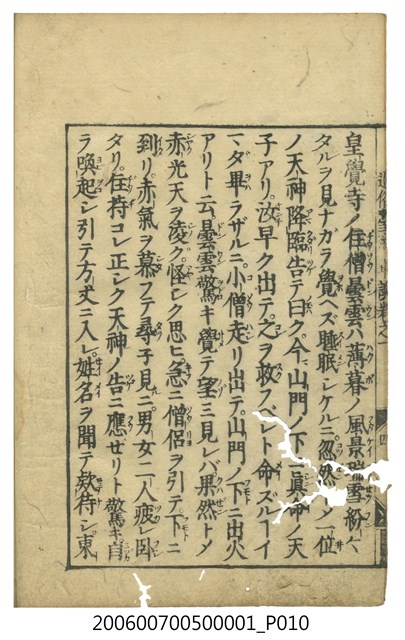 皇覺寺ノ住僧曇雲ハ薄暮ノ風景瑞雪紛々
タルヲ見ナガラ覺ヘズ睡眠シケルニ忽然一位
ノ天神降臨告テ曰ク今山門ノ下ニ眞命ノ天
子アリ汝早ク出テ之ヲ救フベシト命ズルーイ
マダ畢ラザルニ小僧走リ出テ山門ノ下ニ出火
アリト云曇雲驚キ覺テ望ミ見レバ果然トメ
赤光天ヲ凌ク怪シク思ヒ急ニ僧侶ヲ引テ下ニ
到リ赤氣ヲ慕フテ尋子見ニ男女二人疲レ臥
タリ住持コレ正シク天神ノ告ニ應ゼリト驚キ自
ラ喚起シ引テ方丈ニ入レ姓名ヲ聞テ欵待シ東
200600700500001_P010